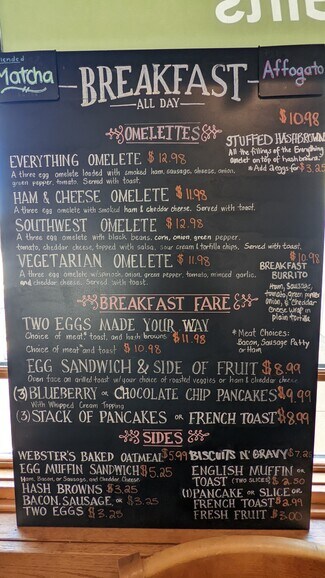 Blended
Matcha
BREAKFAST
ALL DAY
Affogato
OMELETTES
$10.98
STUFFED HASHBROWN
All the fillings of the Everything
omelet on top of hashbrowns!
*Add 2 eggs for $3.25
EVERYTHING OMELETE $12.98
A three egg omelete loaded with smoked ham, sausage, cheese, onion,
green pepper, tomato. Served with toast.
HAM & CHEESE OMELETE $11.98
A three egg omelete with smoked ham & cheddar cheese. Served with toast.
SOUTHWEST OMELETE $12.98
A three egg omelete with black beans, corn, onion, green pepper,
tomato, cheddar cheese, topped with salsa, sour cream & tortilla chips. Served with toast.
VEGETARIAN OMELETE $11.98
A three egg omelete w/spinach, onion, green pepper, tomato, minced garlic,
and cheddar cheese. Served with toast.
$10.98
BREAKFAST
BURRITO
Ham, Sausage,
tomato, green pepper
Onion, & Cheddar
Cheese wrap in
plain tortilla
BREAKFAST FARE
TWO EGGS MADE YOUR WAY
Choice of meat*, toast, and hash browns $11.98
Choice of meat* and toast $10.98
*Meat Choices:
Bacon, Sausage Patty
or Ham
EGG SANDWICH & SIDE OF FRUIT $8.99
Open face on grilled toast w/your choice of roasted veggies or ham & cheddar cheese
(3) BLUEBERRY OR CHOCOLATE CHIP PANCAKES $9.99
With Whipped Cream Topping
(3) STACK OF PANCAKES OR FRENCH TOAST $8.99
SIDES
WEBSTER'S BAKED OATMEAL $5.99
EGG MUFFIN SANDWICH $5.25
Ham, Bacon, or Sausage, and Cheddar Cheese
HASH BROWNS $3.25
BACON, SAUSAGE OR $3.25
TWO EGGS $3.25
BISCUITS N' GRAVY $7.25
ENGLISH MUFFIN OR
TOAST (TWO SLICES) $2.50
(1) PANCAKE OR SLICE OF
FRENCH TOAST $2.99
FRESH FRUIT $3.00